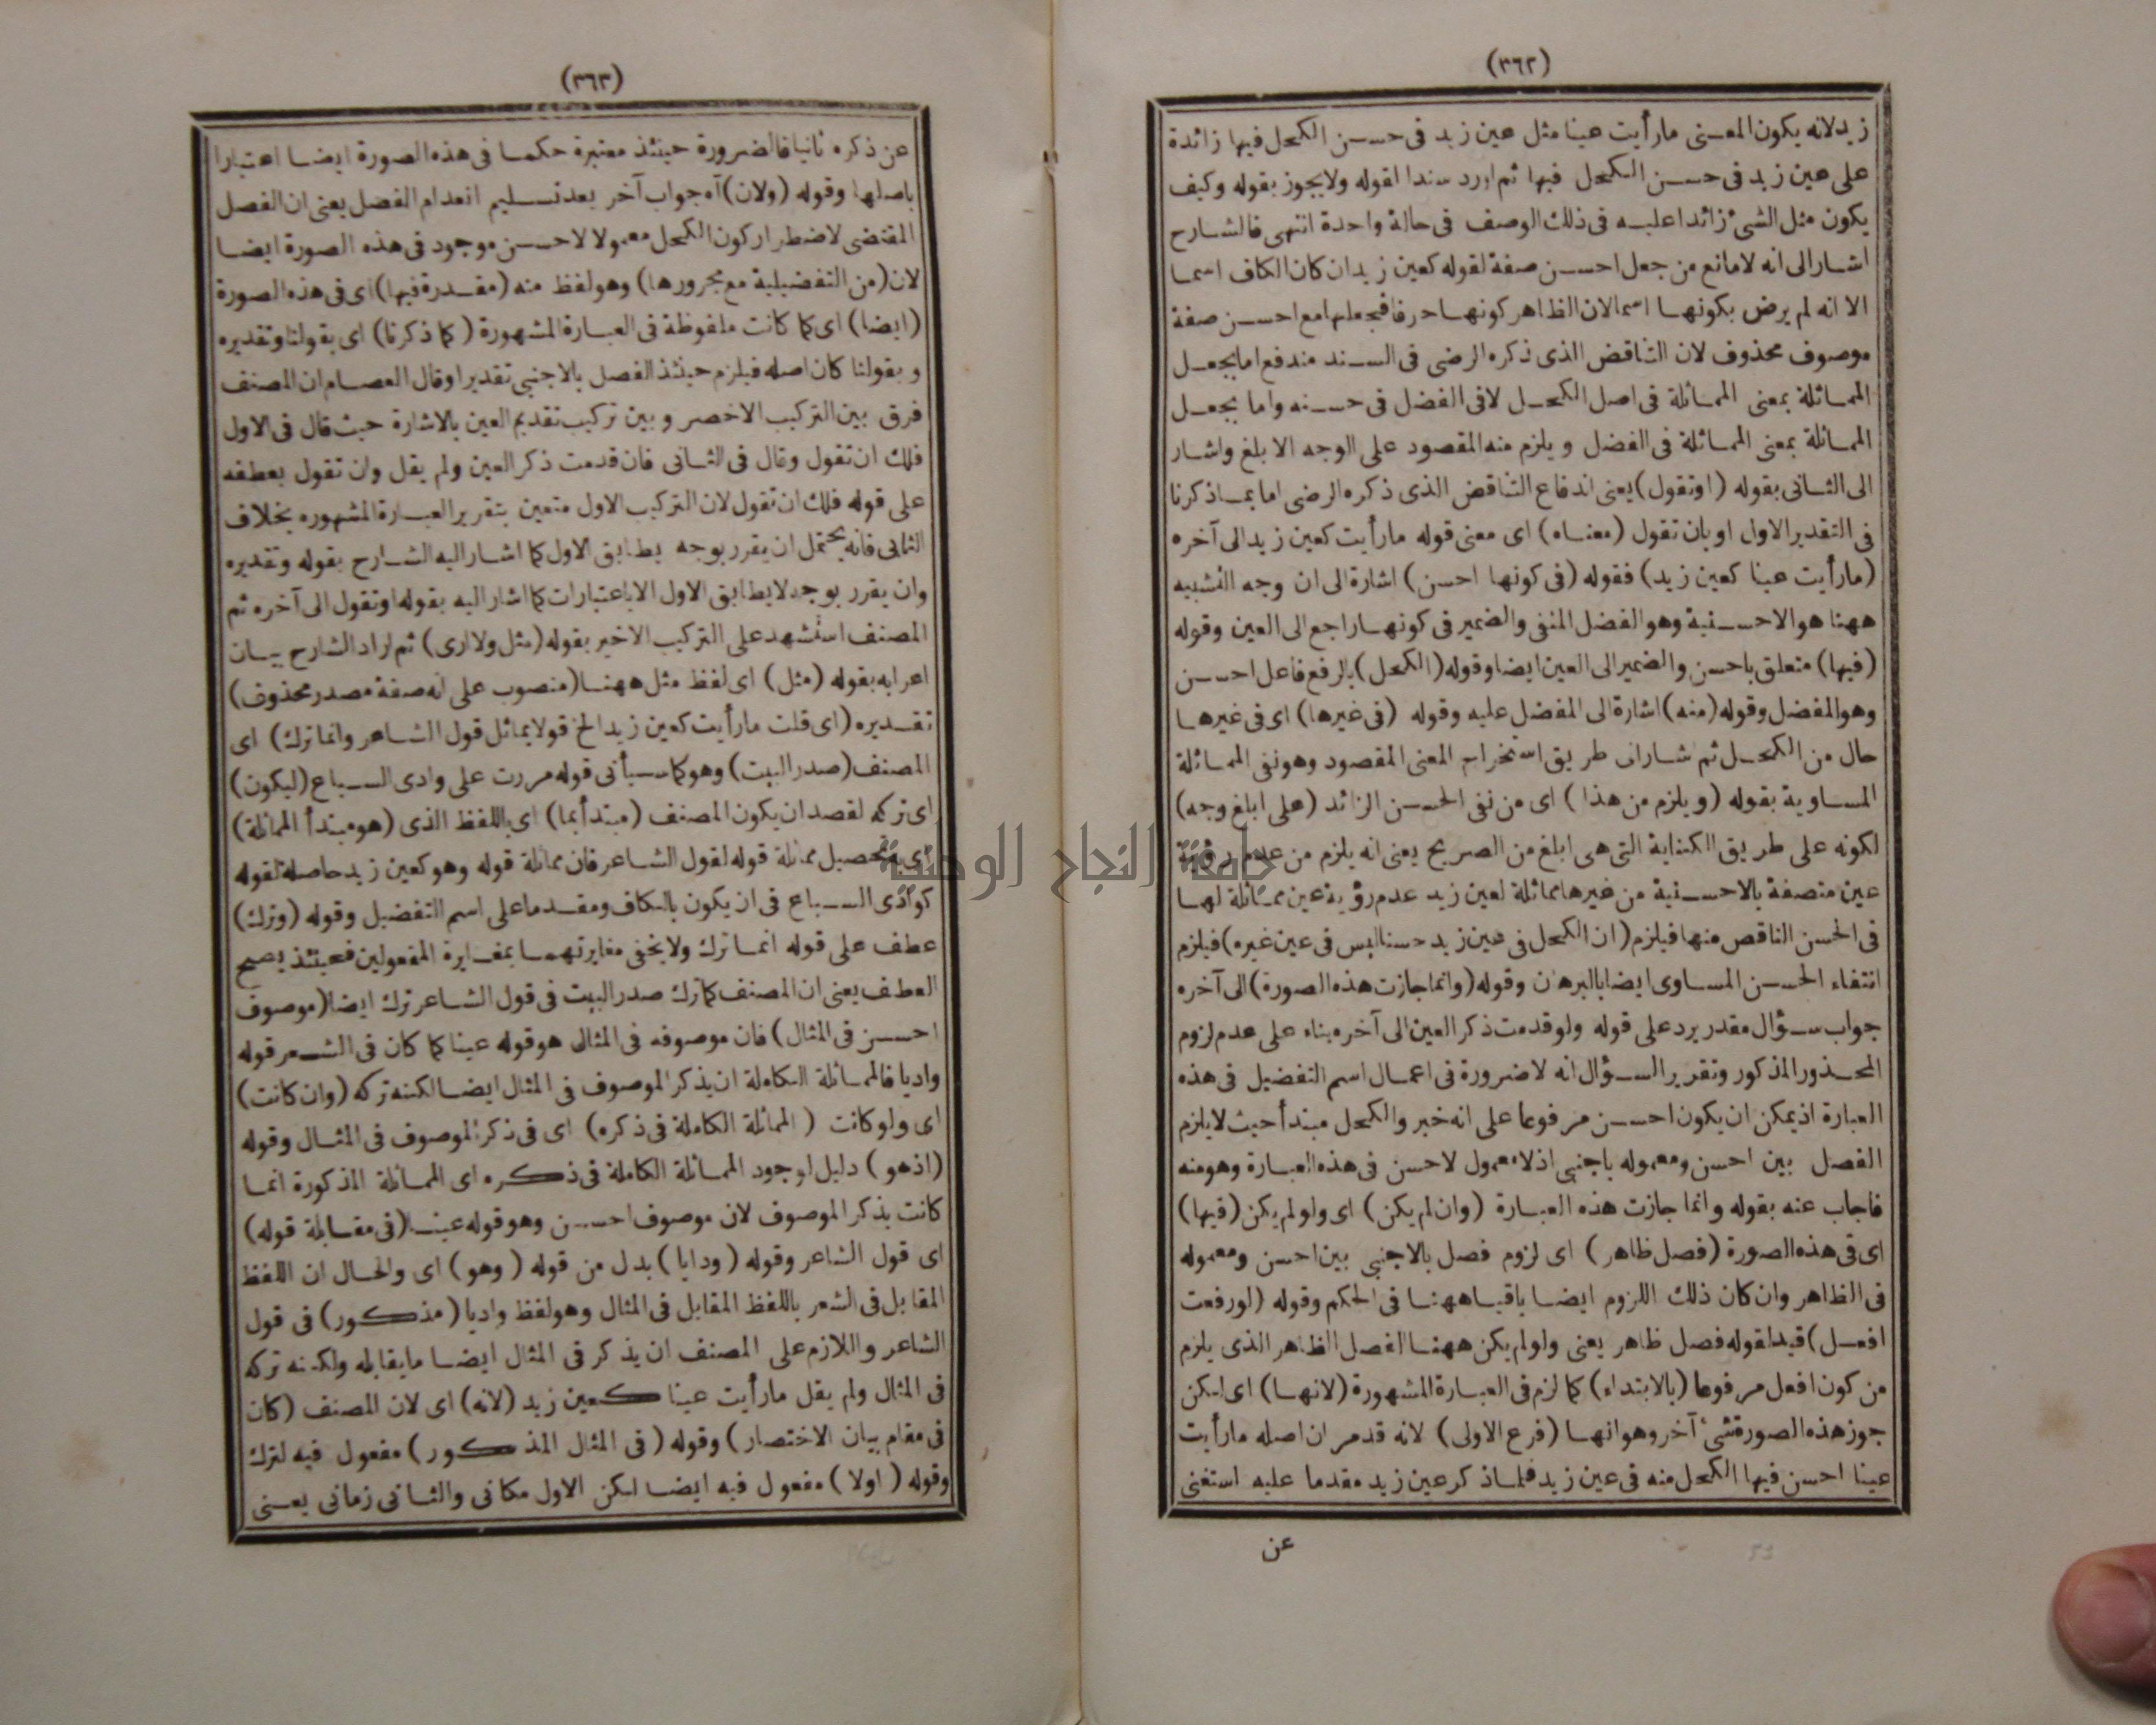 (٣٦٢)
زيد لانه يكون المعنى مارأيت عينا مثل عين زيد فى حسن الكحل فيها زائدة
على عين زيد فى حسن الكحل فيها ثم اورد سندا لقوله ولا يجوز بقوله وكيف
يكون مثل الشئ زائدا عليه فى ذلك الوصف فى حالة واحدة انتهى فالشارح
اشار الى انه لا مانع من جعل احسن صفة لقوله كعين زيد ان كان الكاف اسما
الا انه لم يرض بكونها اسما لان الظاهر كونها حرفا فيجعلها مع احسن صفة
موصوف محذوف لان التناقض الذى ذكره الرضى فى السند مندفع اما بجعل
المماثلة بمعنى المماثلة فى اصل الكحل لا فى الفضل فى حسنه واما بجعل
المماثلة بمعنى المماثلة فى الفضل ويلزم منه المقصود على الوجه الابلغ واشار
الى الثانى بقوله (اوتقول) يعنى اندفاع التناقض الذى ذكره الرضى اما بما ذكرنا
فى التقدير الاول او بان تقول (معناه) اى معنى قوله مارأيت كعين زيد الى آخره
(مارأيت عينا كعين زيد) فقوله (فى كونها احسن) اشارة الى ان وجه التشبيه
ههنا هو الاحسنية وهو الفضل المنفى والضمير فى كونها راجع الى العين وقوله
(فيها) متعلق باحسن والضمير الى العين ايضا وقوله (الكحل) بالرفع فاعل احسن
وهو المفضل وقوله (منه) اشارة الى المفضل عليه وقوله (فى غيرها) اى فى غيرها
حال من الكحل ثم شار الى طريق استخراج المعنى المقصود وهو نفى المماثلة
المساوية بقوله (ويلزم من هذا) اى من نفى الحسن الزائد (على ابلغ وجه)
لكونه على طريق الكناية التى هى ابلغ من الصريح يعنى انه يلزم من عدم رؤية
عين متصفة بالاحسنية من غيرها مماثلة لعين زيد عدم رؤية عين مماثلة لها
فى الحسن الناقص منها فيلزم (ان الكحل فى عين زيد حسنا ليس فى عين غيره) فيلزم
انتفاء الحسن المساوى ايضا بالبرهان وقوله (وانما جازت هذه الصورة) الى آخره
جواب سؤال مقدر يرد على قوله ولو قدمت ذكر العين الى آخره بناء على عدم لزوم
المحذور المذكور وتقرير السؤال انه لا ضرورة فى اعمال اسم التفضيل فى هذه
العبارة اذ يمكن ان يكون احسن مرفوعا على انه خبر والكحل مبتدأ حيث لا يلزم
الفصل بين احسن ومعموله باجنبى اذ لا معمول لاحسن فى هذه العبارة وهو منه
فاجاب عنه بقوله وانما جازت هذه العبارة (وان لم يكن) اى ولو لم يكن (فيها)
اى فى هذه الصورة (فصل ظاهر) اى لزوم فصل بالاجنبى بين احسن ومعموله
فى الظاهر وان كان ذلك اللزوم ايضا باقيا ههنا فى الحكم وقوله (لو رفعت
افعل) قيد لقوله فصل ظاهر يعنى ولو لم يكن ههنا الفصل الظاهر الذى يلزم
من كون افعل مرفوعا (بالابتداء) كما لزم فى العبارة المشهورة (لانها) اى لكن
جوز هذه الصورة شئ آخر وهو انها (فرع الاولى) لانه قد مر ان اصله مارأيت
عينا احسن فيها الكحل منه فى عين زيد فلما ذكر عين زيد مقدما عليه استغنى
عن
(٣٦٣)
عن ذكره ثانيا فالضرورة حينئذ معتبرة حكما فى هذه الصورة ايضا اعتبارا
باصلها وقوله (ولان) آه جواب آخر بعد تسليم انعدام الفصل يعنى ان الفصل
المقتضى لاضطرار كون الكحل معمولا لاحسن موجود فى هذه الصورة ايضا
لان (من التفضيلية مع مجرورها) وهو لفظ منه (مقدرة فيها) اى فى هذه الصورة
(ايضا) اى كما كانت ملفوظة فى العبارة المشهورة (كما ذكرنا) اى بقولنا وتقديره
وبقولنا كان اصله فيلزم حينئذ الفصل بالاجنبى تقديرا وقال العصام ان المصنف
فرق بين التركيب الاخصر وبين تركيب تقديم العين بالاشارة حيث قال فى الاول
فلك ان تقول وقال فى الثانى فان قدمت ذكر العين ولم يقل وان تقول بعطفه
على قوله فلك ان تقول لان التركيب الاول متعين بتقرير العبارة المشهوره بخلاف
الثانى فانه يحتمل ان يقرر بوجه يطابق الاول كما اشار اليه الشارح بقوله وتقديره
وان يقرر بوجه لا يطابق الاول الا باعتبارات كما اشار اليه بقوله اوتقول الى آخره ثم
المصنف استشهد على التركيب الاخير بقوله (مثل ولا ارى) ثم اراد الشارح بيان
اعرابه بقوله (مثل) اى لفظ مثل ههنا (منصوب على انه صفة مصدر محذوف)
تقديره (اى قلت مارأيت كعين زيد الخ قولا يماثل قول الشاعر وانما ترك) اى
المصنف (صدر البيت) وهو كما سيأتى قوله مررت على وادى السباع (ليكون)
اى تركه لقصد ان يكون المصنف (مبتدأ بما) اى باللفظ الذى (هو مبتدأ المماثلة)
اى بتحصيل مماثلة قوله لقول الشاعر فان مماثلة قوله وهو كعين زيد حاصلة لقوله
كوادى السباع فى ان يكون بالكاف ومقدما على اسم التفضيل وقوله (وترك)
عطف على قوله انما ترك ولا يخفى مغايرتهما بمغايرة المفعولين فحينئذ يصح
العطف يعنى ان المصنف كما ترك صدر البيت فى قول الشاعر ترك ايضا (موصوف
احسن فى المثال) فان موصوفه فى المثال هو قوله عينا كما كان فى الشعر قوله
واديا فالمماثلة الكاملة ان يذكر الموصوف فى المثال ايضا لكنه تركه (وان كانت)
اى ولو كانت (المماثلة الكاملة فى ذكره) اى فى ذكر الموصوف فى المثال وقوله
(اذ هو) دليل لوجود المماثلة الكاملة فى ذكره اى المماثلة المذكورة انما
كانت بذكر الموصوف لان موصوف احسن وهو قوله عينا (فى مقابلة قوله)
اى قول الشاعر وقوله (وديا) بدل من قوله (وهو) اى والحال ان اللفظ
المقابل فى الشعر باللفظ المقابل فى المثال وهو لفظ واديا (مذكور) فى قول
الشاعر واللازم على المصنف ان يذكر فى المثال ايضا ما يقابله ولكنه تركه
فى المثال ولم يقل مارأيت عينا كعين زيد (لانه) اى لان المصنف (كان
فى مقام بيان الاختصار) وقوله (فى المثال المذكور) مفعول فيه لترك
وقوله (اولا) مفعول فيه ايضا لكن الاول مكانى والثانى زمانى يعنى
جامعة النجاح الوطنية